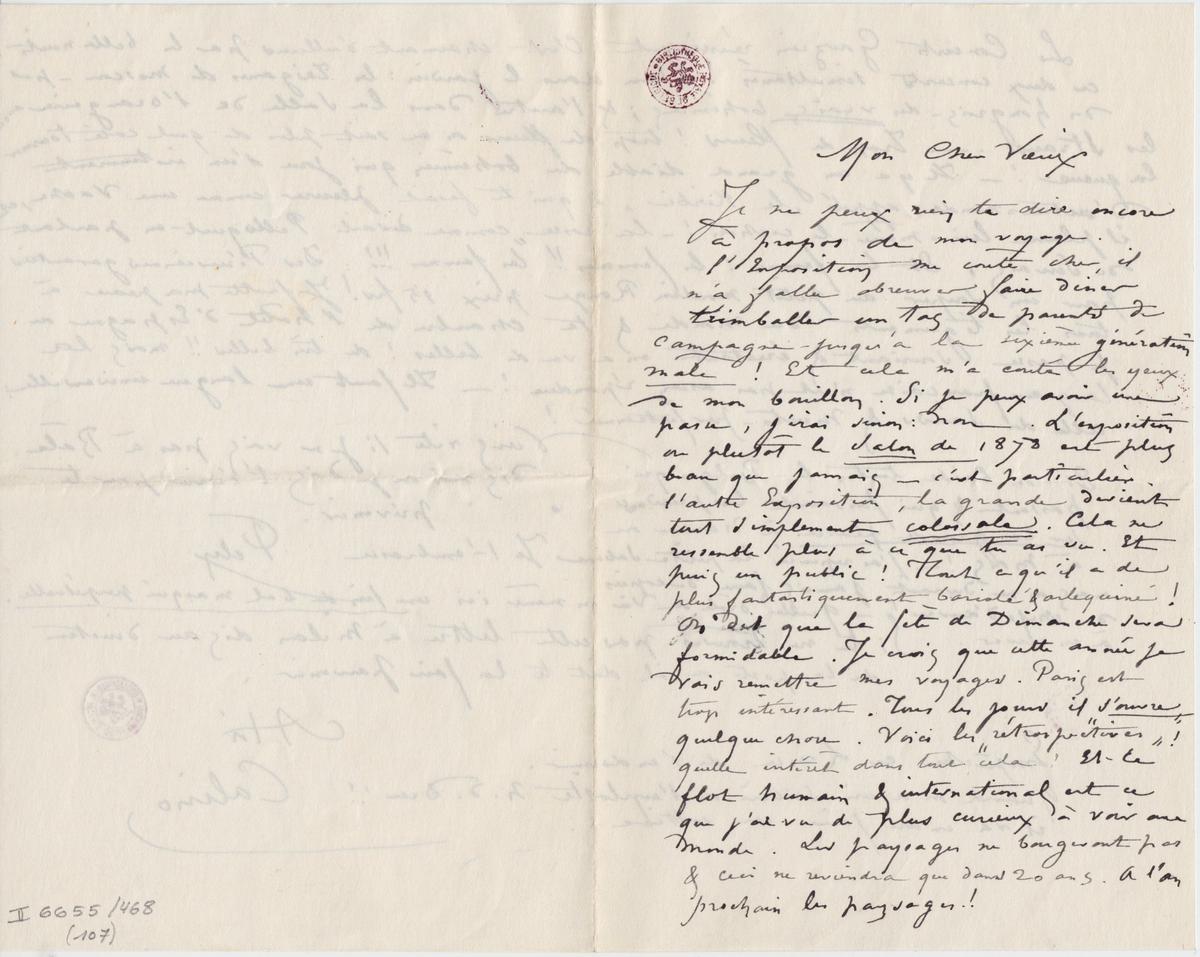 Mon Cher Vieux
Je ne peux rien te dire encore
à propos de mon voyage.
l'Exposition me coute cher, il
m'a fallu abreuver faire diner
trimballer un tas de parents de
campagne – jusqu'à la sixième génération
male ! Et cela m'a couté les yeux
de mon bouillon. Si je peux avoir une
passe, j'irai sinon : non. L'exposition
ou plutôt le Salon de 1878 est plus
beau que jamais – c'est particulier.
l'autre Exposition, la grande devient
tout simplement colossale. Cela ne
ressemble plus à ce que tu as vu. Et
puis un public ! Tout ce qu'il a de
plus fantastiquement bariolé & arlequiné !
On dit que la fête de Dimanche sera
formidable. Je crois que cette année je
vais remettre mes voyages. Paris est
trop intéressant. Tous les jours il s'ouvre
quelque chose. Voici les "rétrospectives" !
quelle intérêt dans tout cela ! Et le
flot humain & international est ce
que j'ai vu de plus curieux à voir au
monde. Les paysages ne bougeront pas
& ceci ne reviendra que dans 20 ans. A l'an
prochain les paysages !!
II 6655/468
(107)